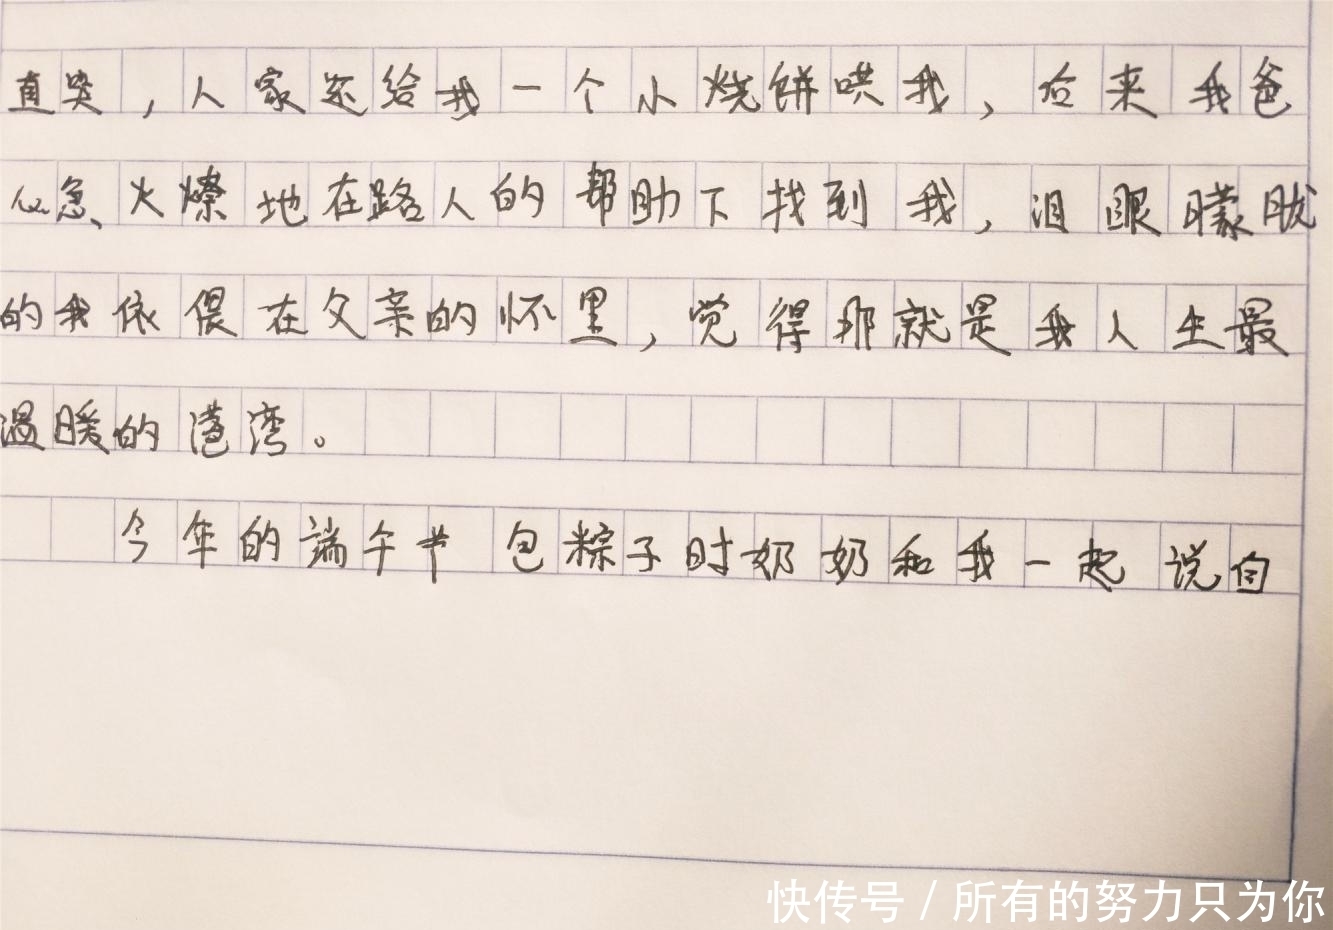 直哭，人家还给我一个小烧饼哄我，后来我爸
心急火燎地在路人的帮助下找到我，泪眼朦胧
的我依偎在父亲的怀里，觉得那就是我人生最
温暖的港湾。
今年的端午节包粽子时奶奶和我一起说白
快传号 / 所有的努力只为你